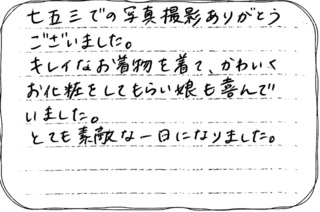 七五三での写真撮影ありがとう
ございました。
キレイなお着物を着て、かわいく
お化粧をしてもらい娘も喜んで
いました。
とても素敵な一日になりました。